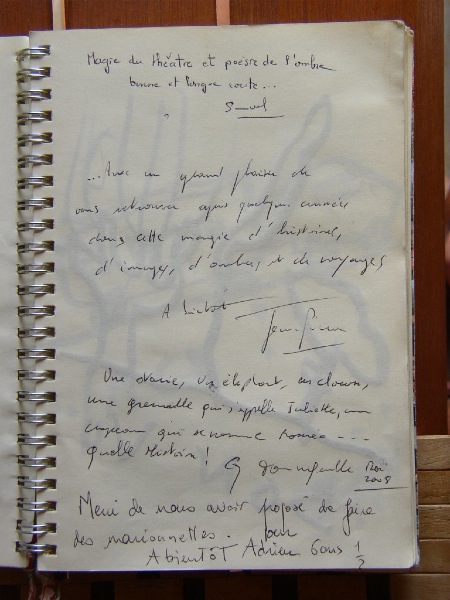 Magie du théâtre et poésie de l'ombre
bonne et longue route...
...Avec un grand plaisir de
vous retrouver après quelques années
dans cette magie d'histoires,
d'images, d'ombres et de voyages
A bientôt
Une otarie, un éléphant, un clown,
une grenouille qui s'appelle Juliette, un
crapeau qui se nomme Roméo ---
quelle Histoire!
2008
Merci de nous avoir proposé de faire
des marionnettes.
A bientôt Adrien 6 ans 1/2